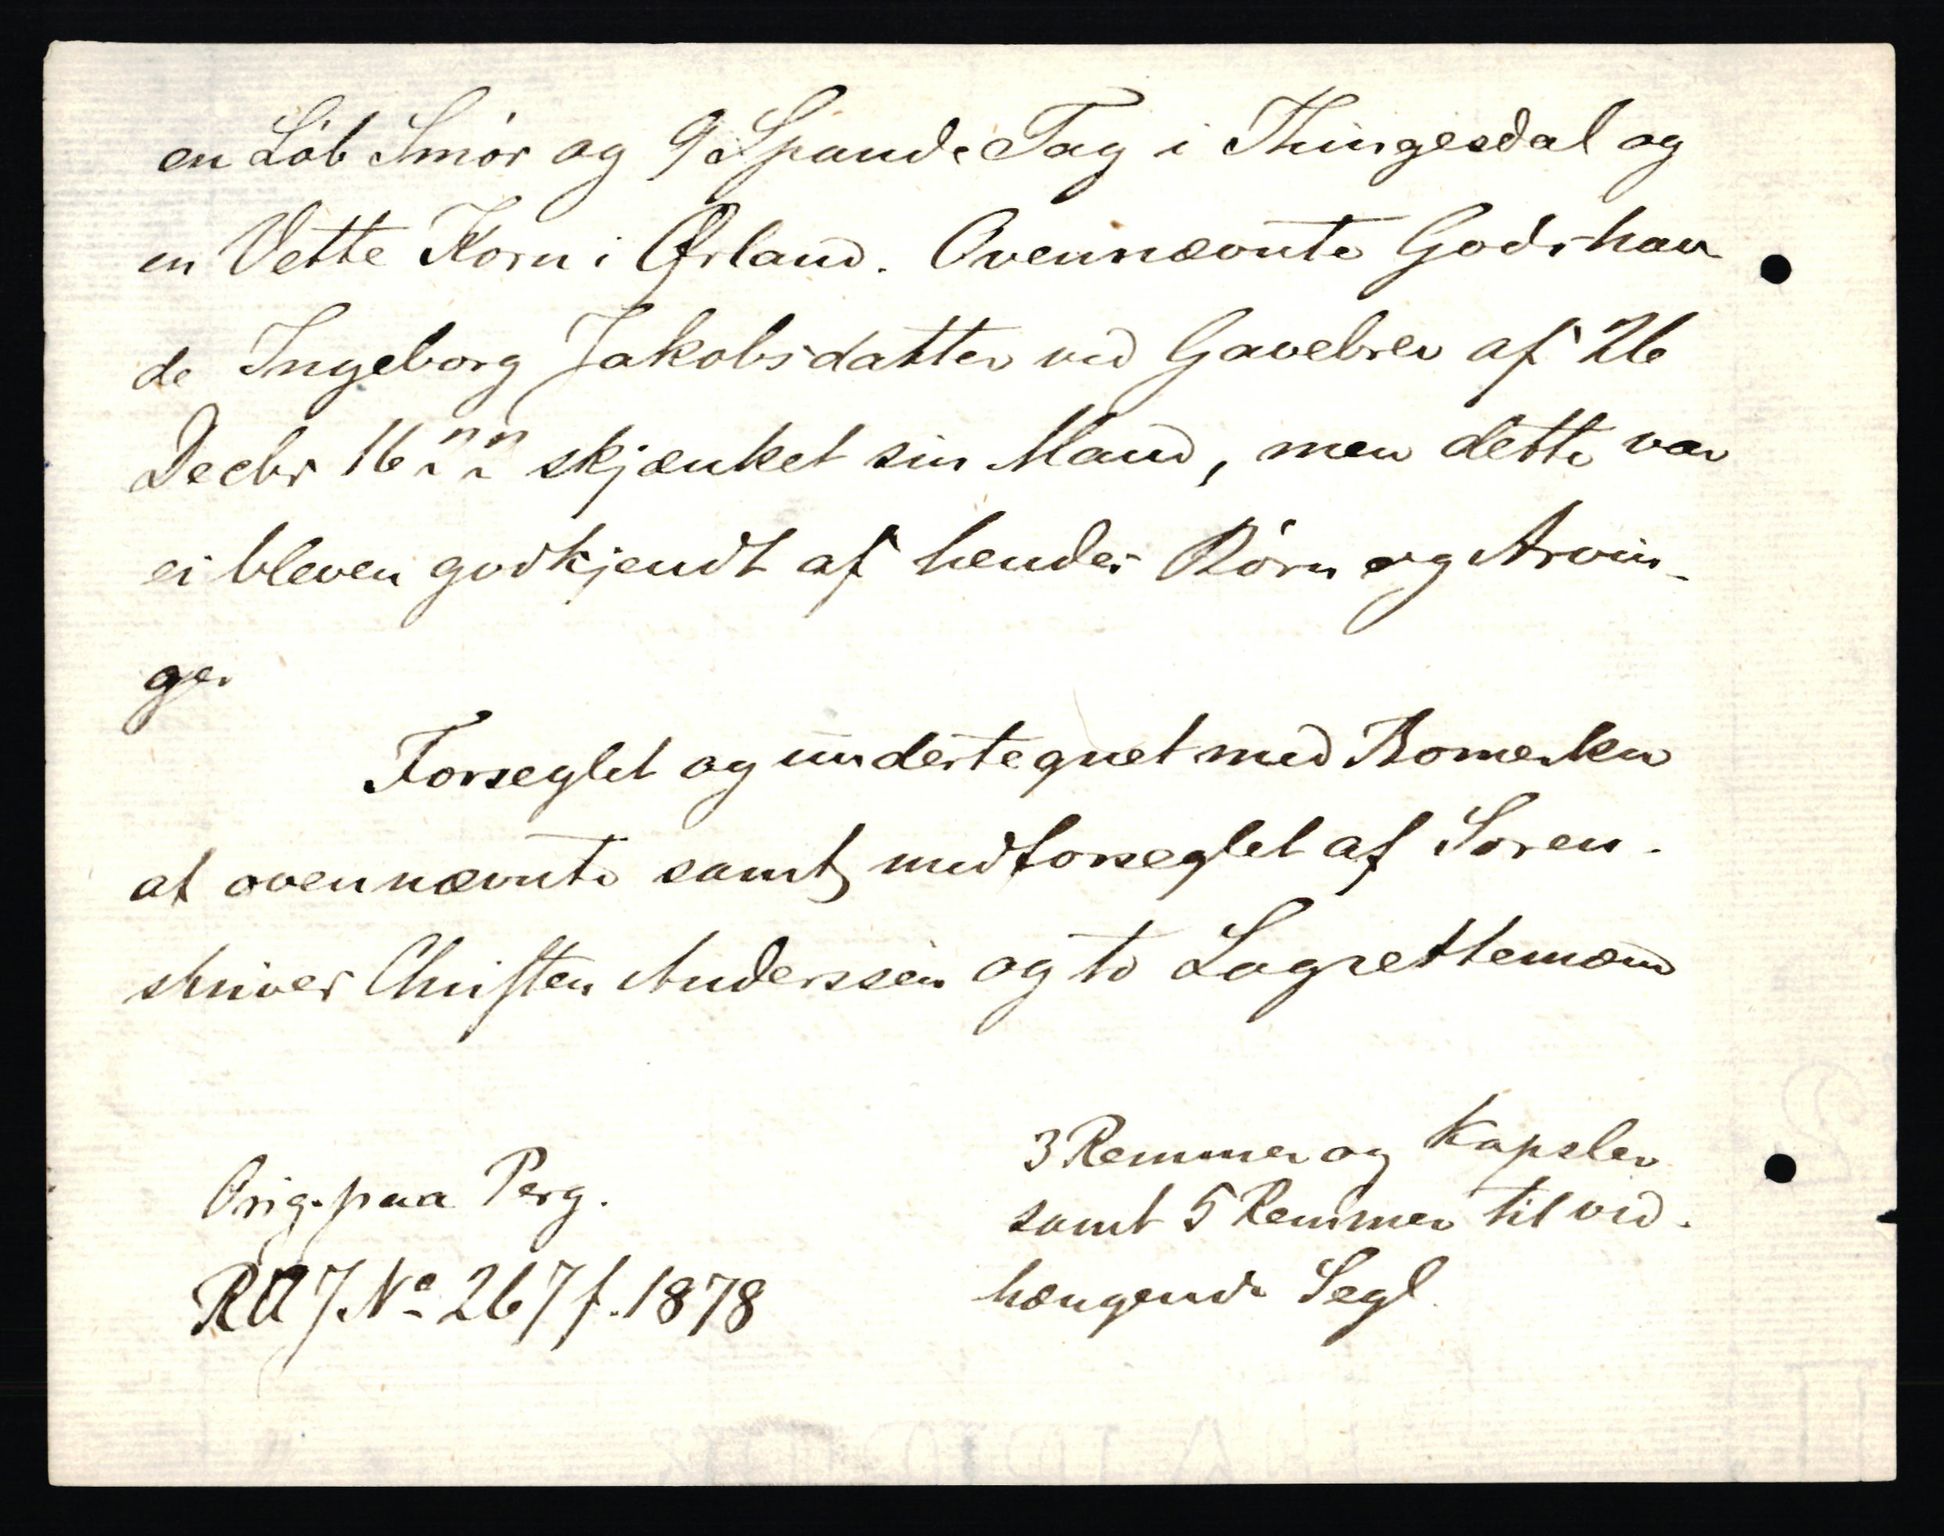 en Løb Smør og 9 Spand. Tag i Thingesdal og
en Vette Korn i Ørland. Ovennævnte Gods hav
de Ingeborg Jakobsdatter ved Gavebrev af 26
Decbr 16 skjænket sin Mand, men dette var
ei bleven godkjendt af hendes Børn og Arvin-
ger
Forseglet og undertegnet med Bomerker
af ovennævnte samt medforseglet af Soren-
skriver Christen Anderssen og to Lagrettemænd
3 Remmer og Kapsler
samt 5 Remmer til ved-
hængende Segl.
Orig. paa Perg.
RA J. No 267 f. 1878